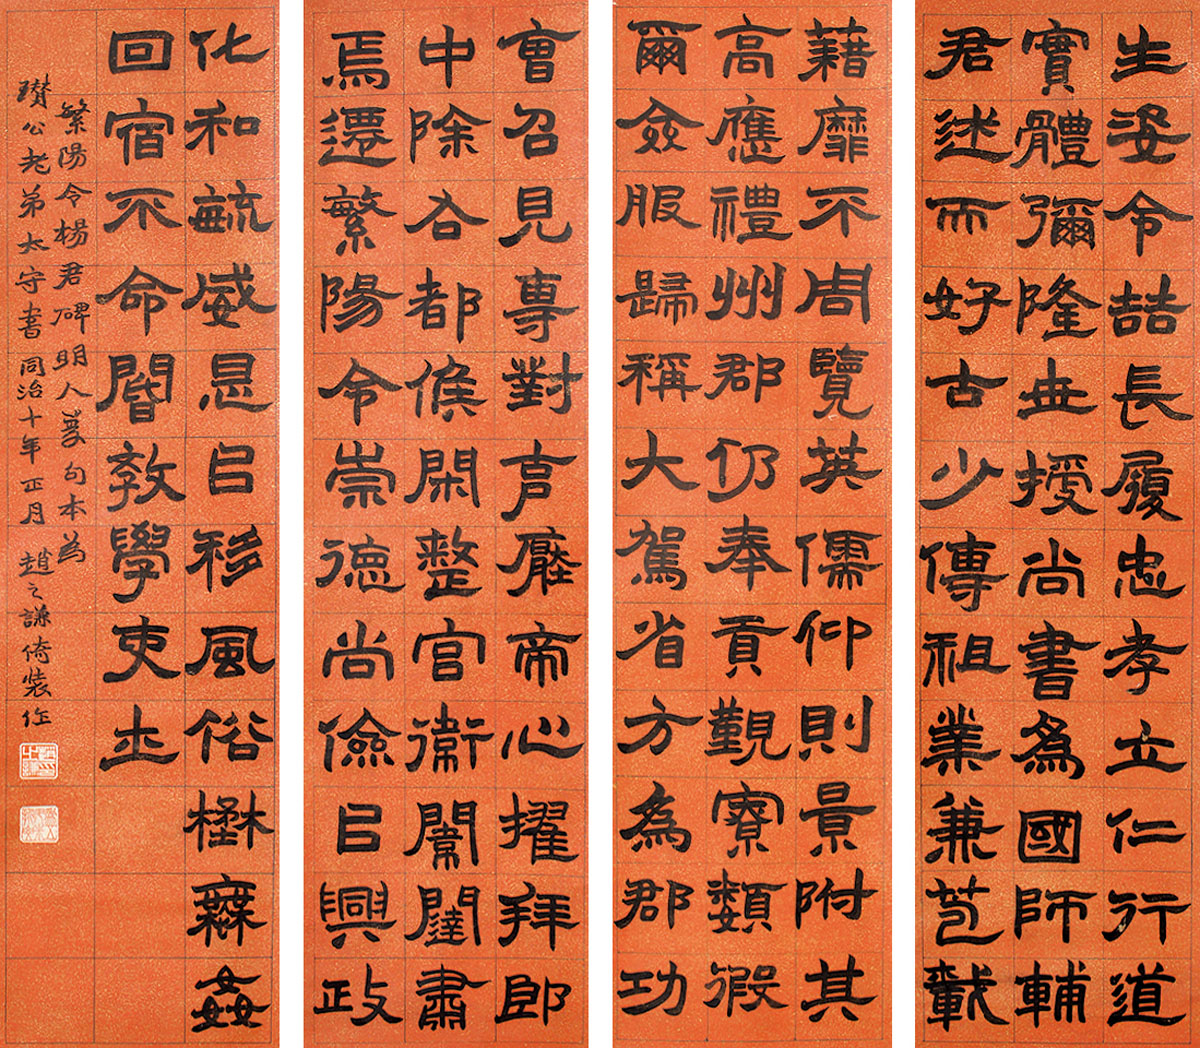 生姿令喆長履忠孝立仁行道
實體彌隆世授尚書為國師輔
君述而好古少傳祖業兼苞載
藉靡不周覽英儒仰則景附其
高應禮州郡仍奉貢覲寮類假
爾僉服歸稱大駕省方為郡功
曹召見專對亯廱帝心擢拜郎
中除右都候閑整宮衛闈闥肅
焉遷繁陽令崇德尚儉㠯興政
化和毓威恩㠯移風俗無姦
回宿不命閽敦學吏士
繁陽令楊君碑明人雙句本為
瓚公老弟太守書同治十年正月趙之謙倚裝作